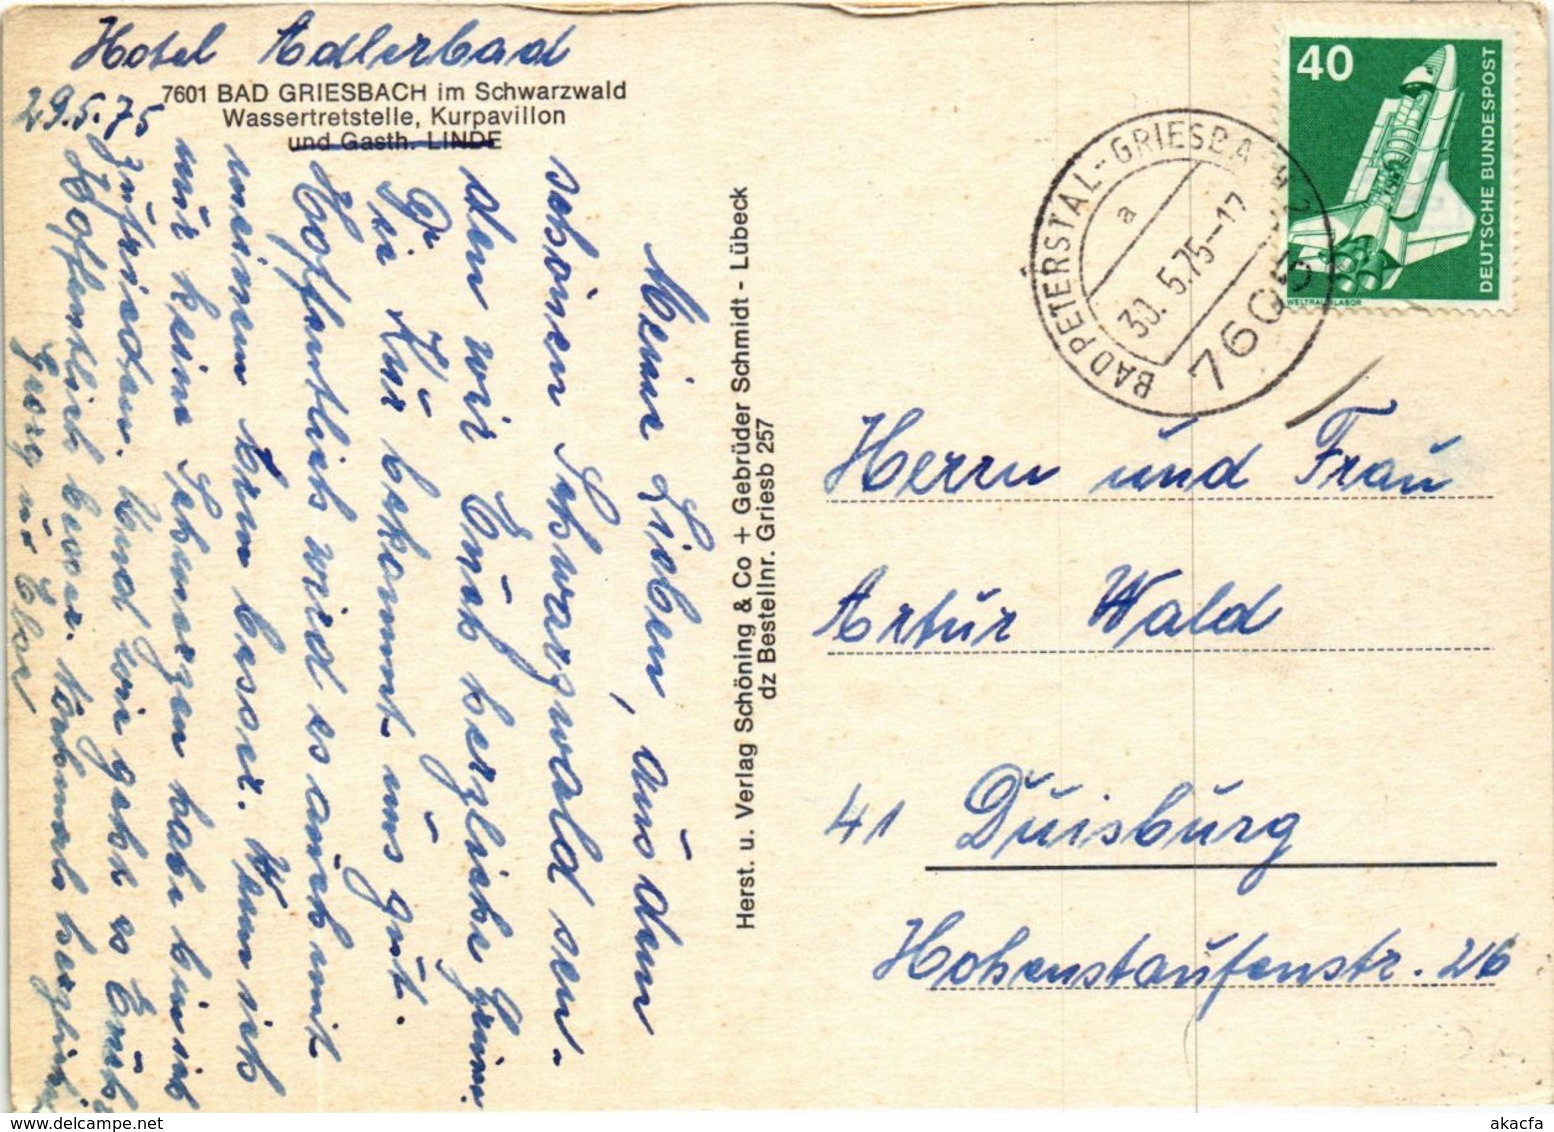 Hotel Adlerbad
7601 BAD GRIESBACH im Schwarzwald
Wassertretstelle, Kurpavillon
und Gasth. LINDE
29.5.75
Meine Lieben, aus dem
schönen Schwarzwald sen-
den wir Euch herzliche Grüße.
Die Kur bekommt uns gut.
Hoffentlich wird es auch mit
meinen Knien besser. Wenn ich
nur keine Schmerzen habe bin ich
zufrieden. Und wie geht es Euch?
Hoffentlich besser. Nochmals herzlichst
Georg u. Else
Herst. u. Verlag Schöning & Co + Gebrüder Schmidt - Lübeck
dz Bestellnr. Griesb 257
BAD PETERSTAL-GRIESBA
a
30. 5.75-17
7605
40
DEUTSCHE BUNDESPOST
WELTRAUMLABOR
Herrn und Frau
Artur Wald
41 Duisburg
Hohenstaufenstr. 26
www.akacfa.com